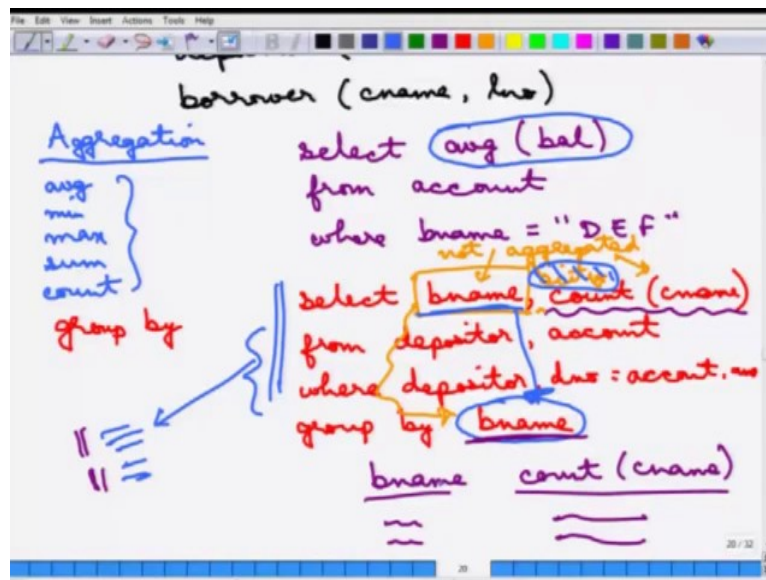 File Edit View Insert Actions Tools Help
borrower (cname, lno)
Aggregation
avg
min
max
sum
count
group by
select avg (bal)
from account
where bname = "DEF"
not aggregated
select bname, count (cname)
from depositor, account
where depositor. dno = accont.
group by bname
bname count (cname)
20/32
20